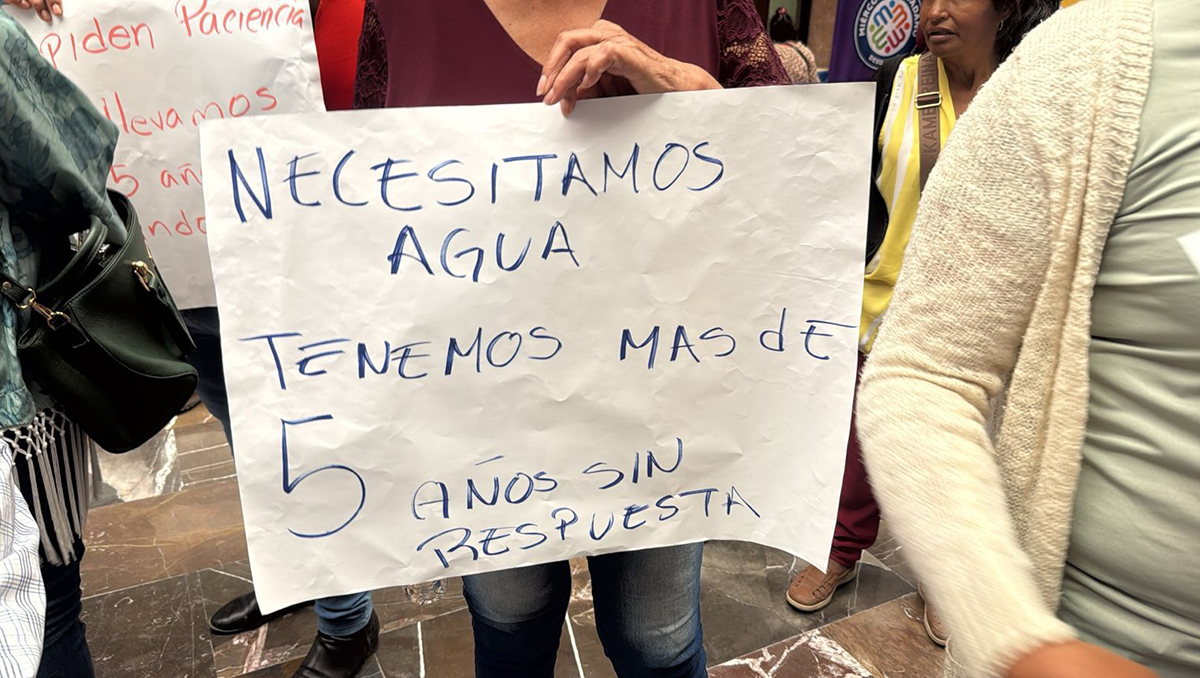 Piden Paciencia
llevamos
5 añ
ndo
NECESITAMOS
AGUA
TENEMOS MAS dE
5 AÑOS SIN
RESPUESTA
KAME